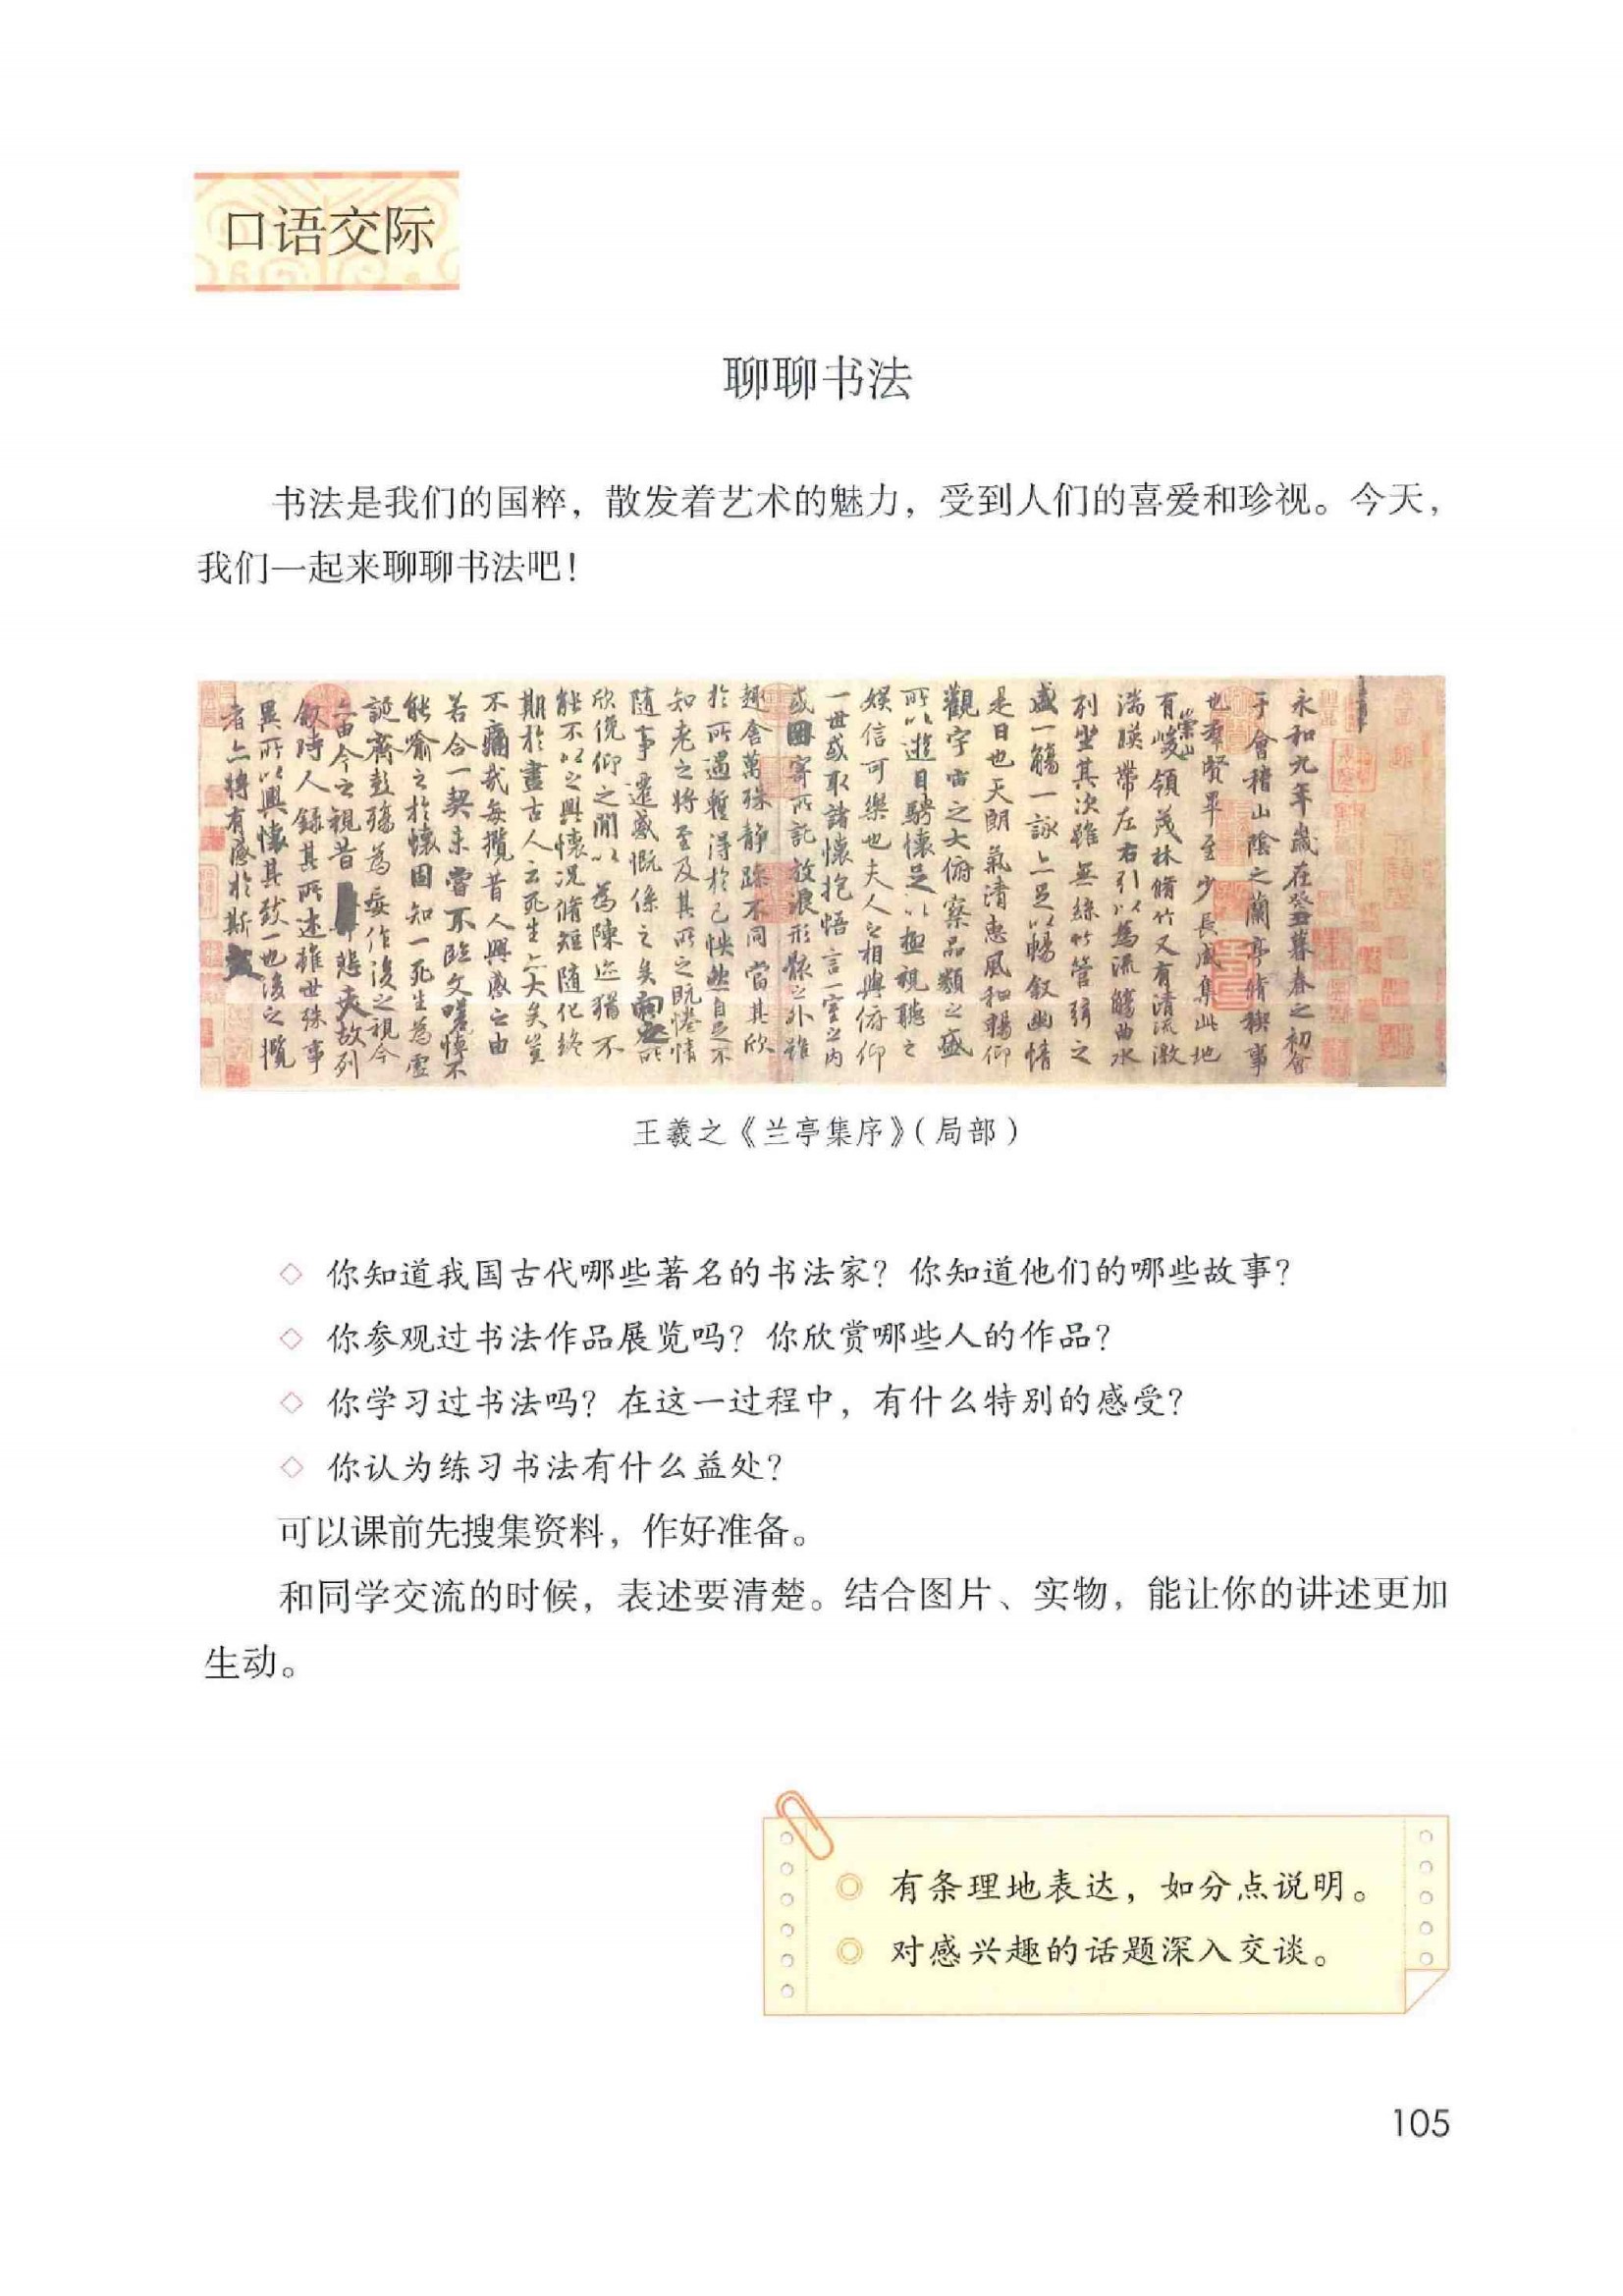 口语交际
聊聊书法
书法是我们的国粹，散发着艺术的魅力，受到人们的喜爱和珍视。今天，
我们一起来聊聊书法吧！
永和九年歲在癸丑暮春之初會
于會稽山陰之蘭亭脩稧事
也羣賢畢至少長咸集此地
有崇山峻領茂林脩竹又有清流激
湍暎帶左右引以為流觴曲水
列坐其次雖無絲竹管弦之
盛一觴一詠亦足以暢叙幽情
是日也天朗氣清惠風和暢仰
觀宇宙之大俯察品類之盛
所以遊目騁懷足以極視聽之
娛信可樂也夫人之相與俯仰
一世或取諸懷抱悟言一室之内
或因寄所託放浪形骸之外雖
趣舍萬殊静躁不同當其欣
於所遇暫得於己怏然自足不
知老之將至及其所之既惓情
隨事遷感慨係之矣向之所
欣俛仰之閒以為陳迹猶不
能不以之興懷况脩短隨化終
期於盡古人云死生亦大矣豈
不痛哉每攬昔人興感之由
若合一契未嘗不臨文嗟悼不
能喻之於懷固知一死生為虛
誕齊彭殤為妄作後之視今
亦由今之視昔悲夫故列
叙時人錄其所述雖世殊事
異所以興懷其致一也後之攬
者亦將有感於斯文
王羲之《兰亭集序》（局部）
◇ 你知道我国古代哪些著名的书法家？你知道他们的哪些故事？
◇ 你参观过书法作品展览吗？你欣赏哪些人的作品？
◇ 你学习过书法吗？在这一过程中，有什么特别的感受？
◇ 你认为练习书法有什么益处？
可以课前先搜集资料，作好准备。
和同学交流的时候，表述要清楚。结合图片、实物，能让你的讲述更加
生动。
◎ 有条理地表达，如分点说明。
◎ 对感兴趣的话题深入交谈。
105